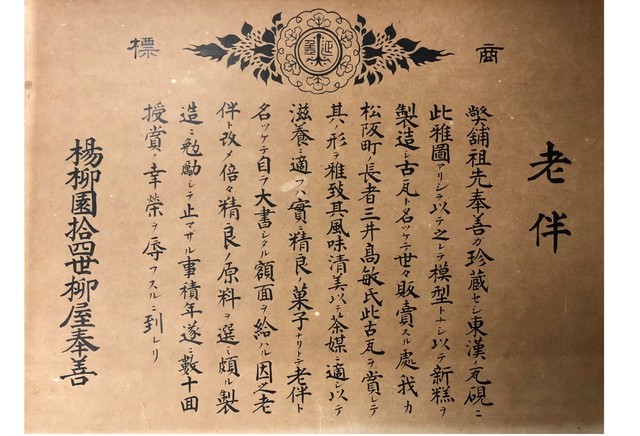 商標
老伴
弊舗祖先奉善ガ珍蔵セシ東漢ノ瓦硯ニ
此雅圖アリシヲ以テ之レテ模型トナシ以テ新糕ヲ
製造シ古瓦ト名ッケテ世々販賣スル處我カ
松阪町ノ長者三井高敏氏此古瓦ヲ賞シテ
其ノ形ヲ雅致其風味清美以テ茶媒ニ適シ以テ
滋養ニ適フハ實ニ精良ノ菓子ナリトテ老伴ト
名ッケテ自ラ大書シタル額面ヲ給ハル因之老
伴ト改メ倍々精良ノ原料ヲ選ミ頗ル製
造ニ勉勵シテ止マサル事積年遂ニ數十回
授賞ノ幸榮ヲ辱フスルニ到レリ
楊柳園拾四世柳屋奉善